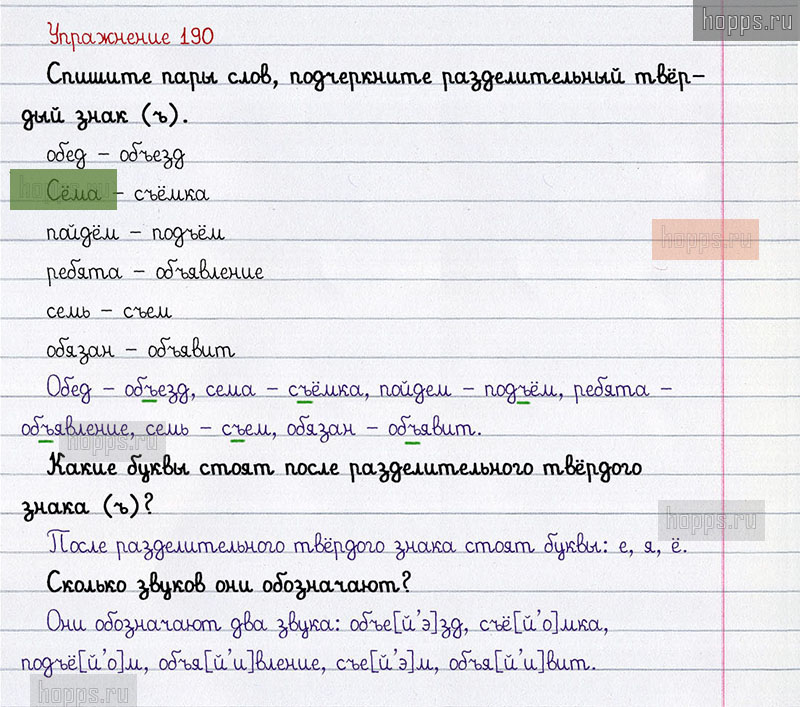 hopps.ru
Упражнение 190
Спишите пары слов, подчеркните разделительный твёр-
дый знак (ъ).
обед – объезд
Сёма – съёмка
hopps.ru
пойдём – подъём
hopps.ru
ребята – объявление
семь – съем
обязан – объявит
Обед – объезд, сема – съёмка, пойдем – подъём, ребята –
объявление, семь – съем, обязан – объявит.
hopps.ru
Какие буквы стоят после разделительного твёрдого
знака (ъ)?
hopps.ru
После разделительного твёрдого знака стоят буквы: е, я, ё.
Сколько звуков они обозначают?
Они обозначают два звука: объе[й'э]зд, съё[й'о]мка,
подъё[й'о]м, объя[й'и]вление, съе[й'э]м, объя[й'и]вит.
hopps.ru